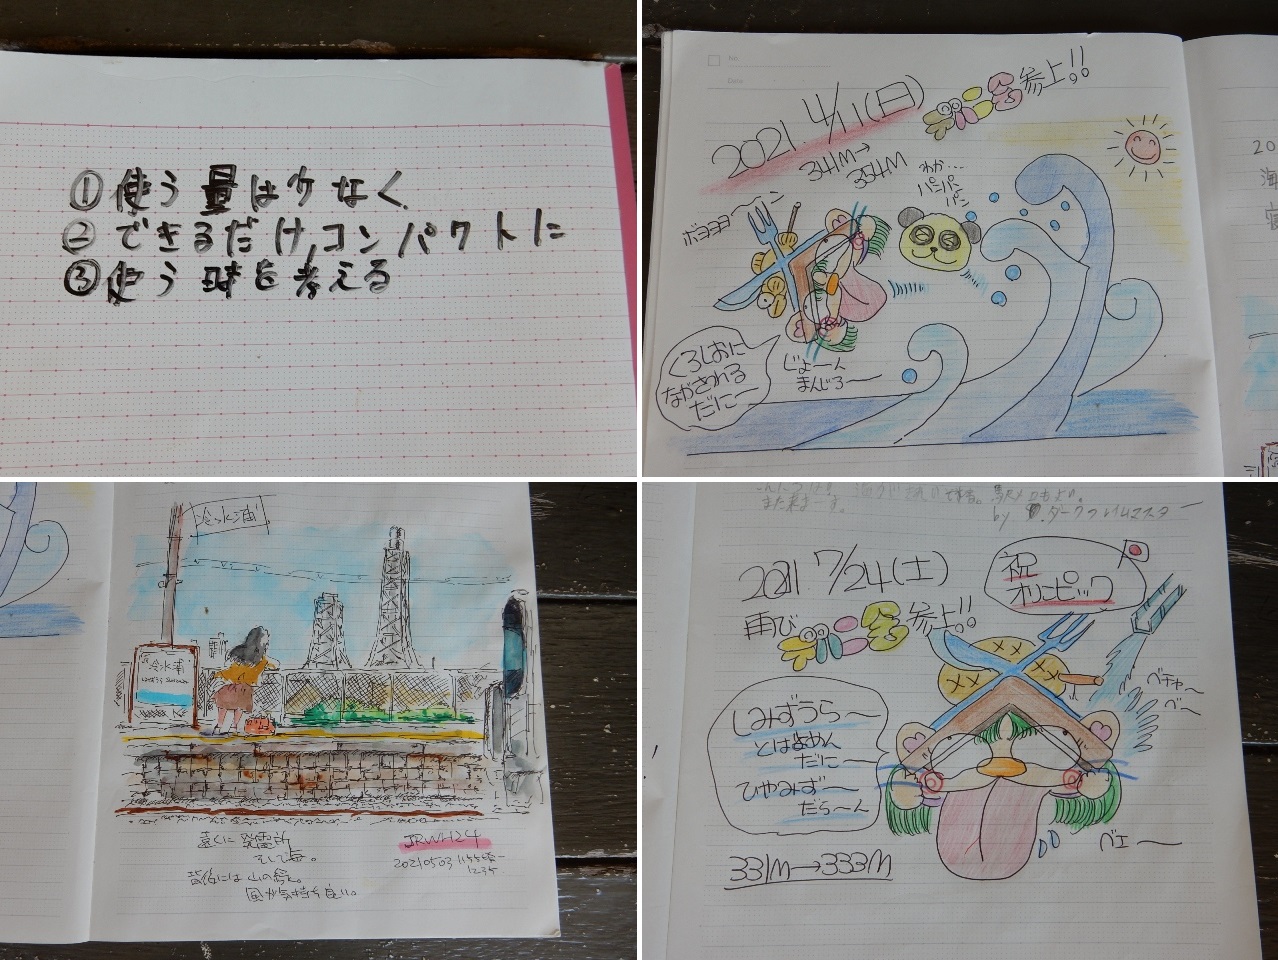 ①使う量は少なく
②できるだけ、コンパクトに
③使う時を考える
2021. 4/11(日)
参上!!
341M→
354M
わか…
パンパ
パン
ボヨヨヨ〜ン
くろしおに
ながされる
だに〜
じょ〜ん
まんじろ〜
20
海
冷水浦
冷水浦
遠くに発電所
そして海。
背後には山の緑。
風が気持ち良い。
JRWH24
20210503
1235
また来ま す。
by ダークフレイムマスター
2021. 7/24(土)
祝
オリンピック
再び
参上!!
しみずうら〜
とはよめん
だに〜
ひやみず〜
だら〜ん
ベチャ〜
べ〜
べェ〜
331M→333M